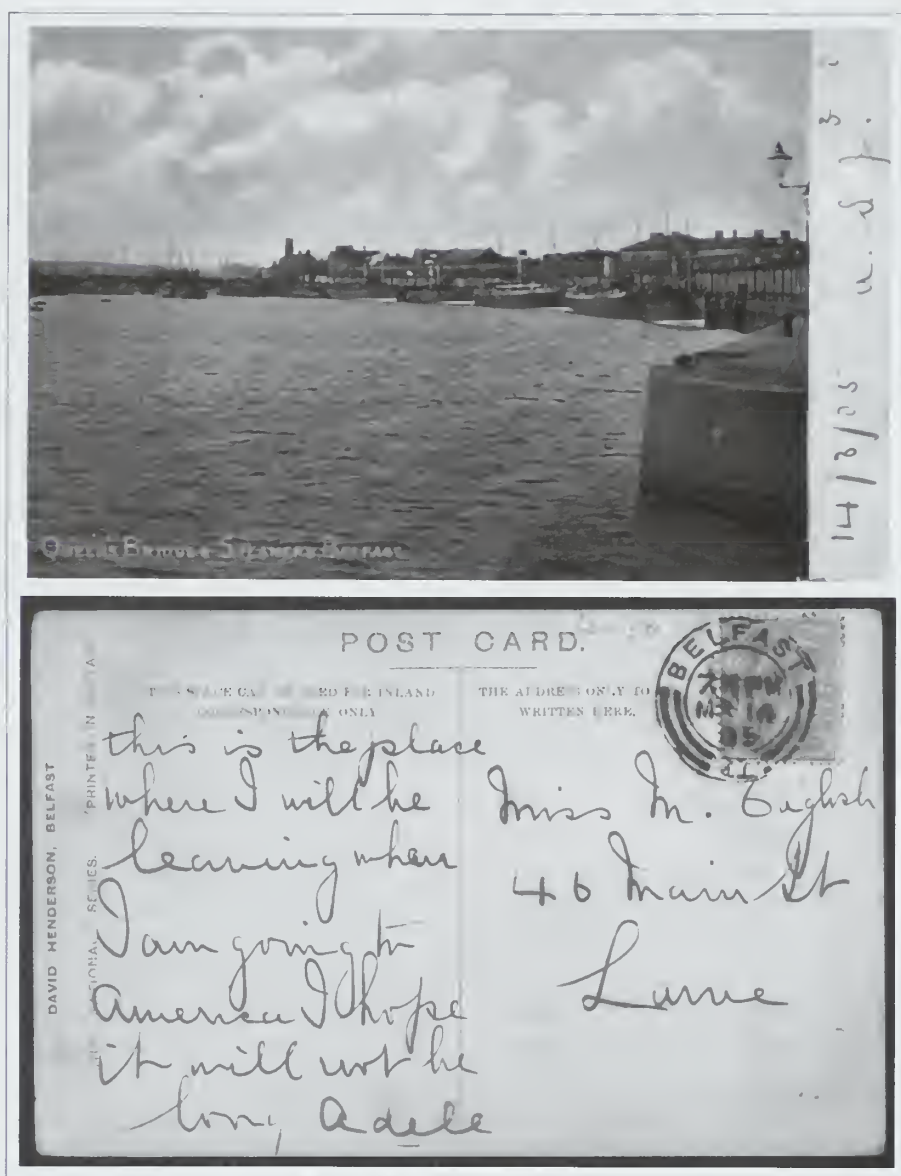 14/3/05
QUEEN'S BRIDGE & STEAMERS. BELFAST
POST CARD.
THIS SPACE CAN BE USED FOR INLAND
CORRESPONDENCE ONLY
THE ADDRESS ONLY TO
WRITTEN HERE.
BELFAST
PM
14
05
DAVID HENDERSON, BELFAST
SERIES.
PRINTED IN
this is the place
where I will be
leaving when
I am going to
America I hope
it will not be
long Adele
Miss M. English
46 Main St
Larne